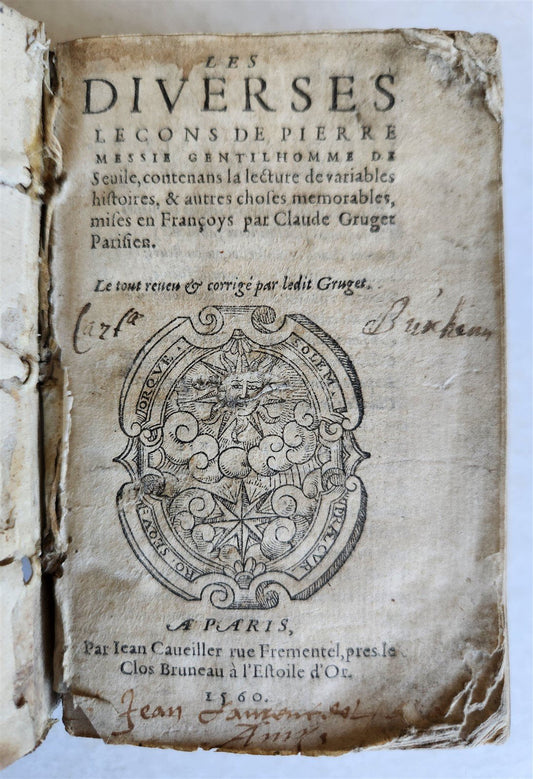 LES
DIVERSES
LECONS DE PIERRE
MESSIE GENTILHOMME DE
Seuile, contenans la lecture de variables
histoires, & autres choses memorables,
mises en Françoys par Claude Gruget
Parisien.
Le tout reueu & corrigé par ledit Gruget.
SOLEM
Æ PARIS,
Par Iean Caueiller rue Frementel, pres le
Clos Bruneau à l'Estoile d'Or.
1560.
Jean